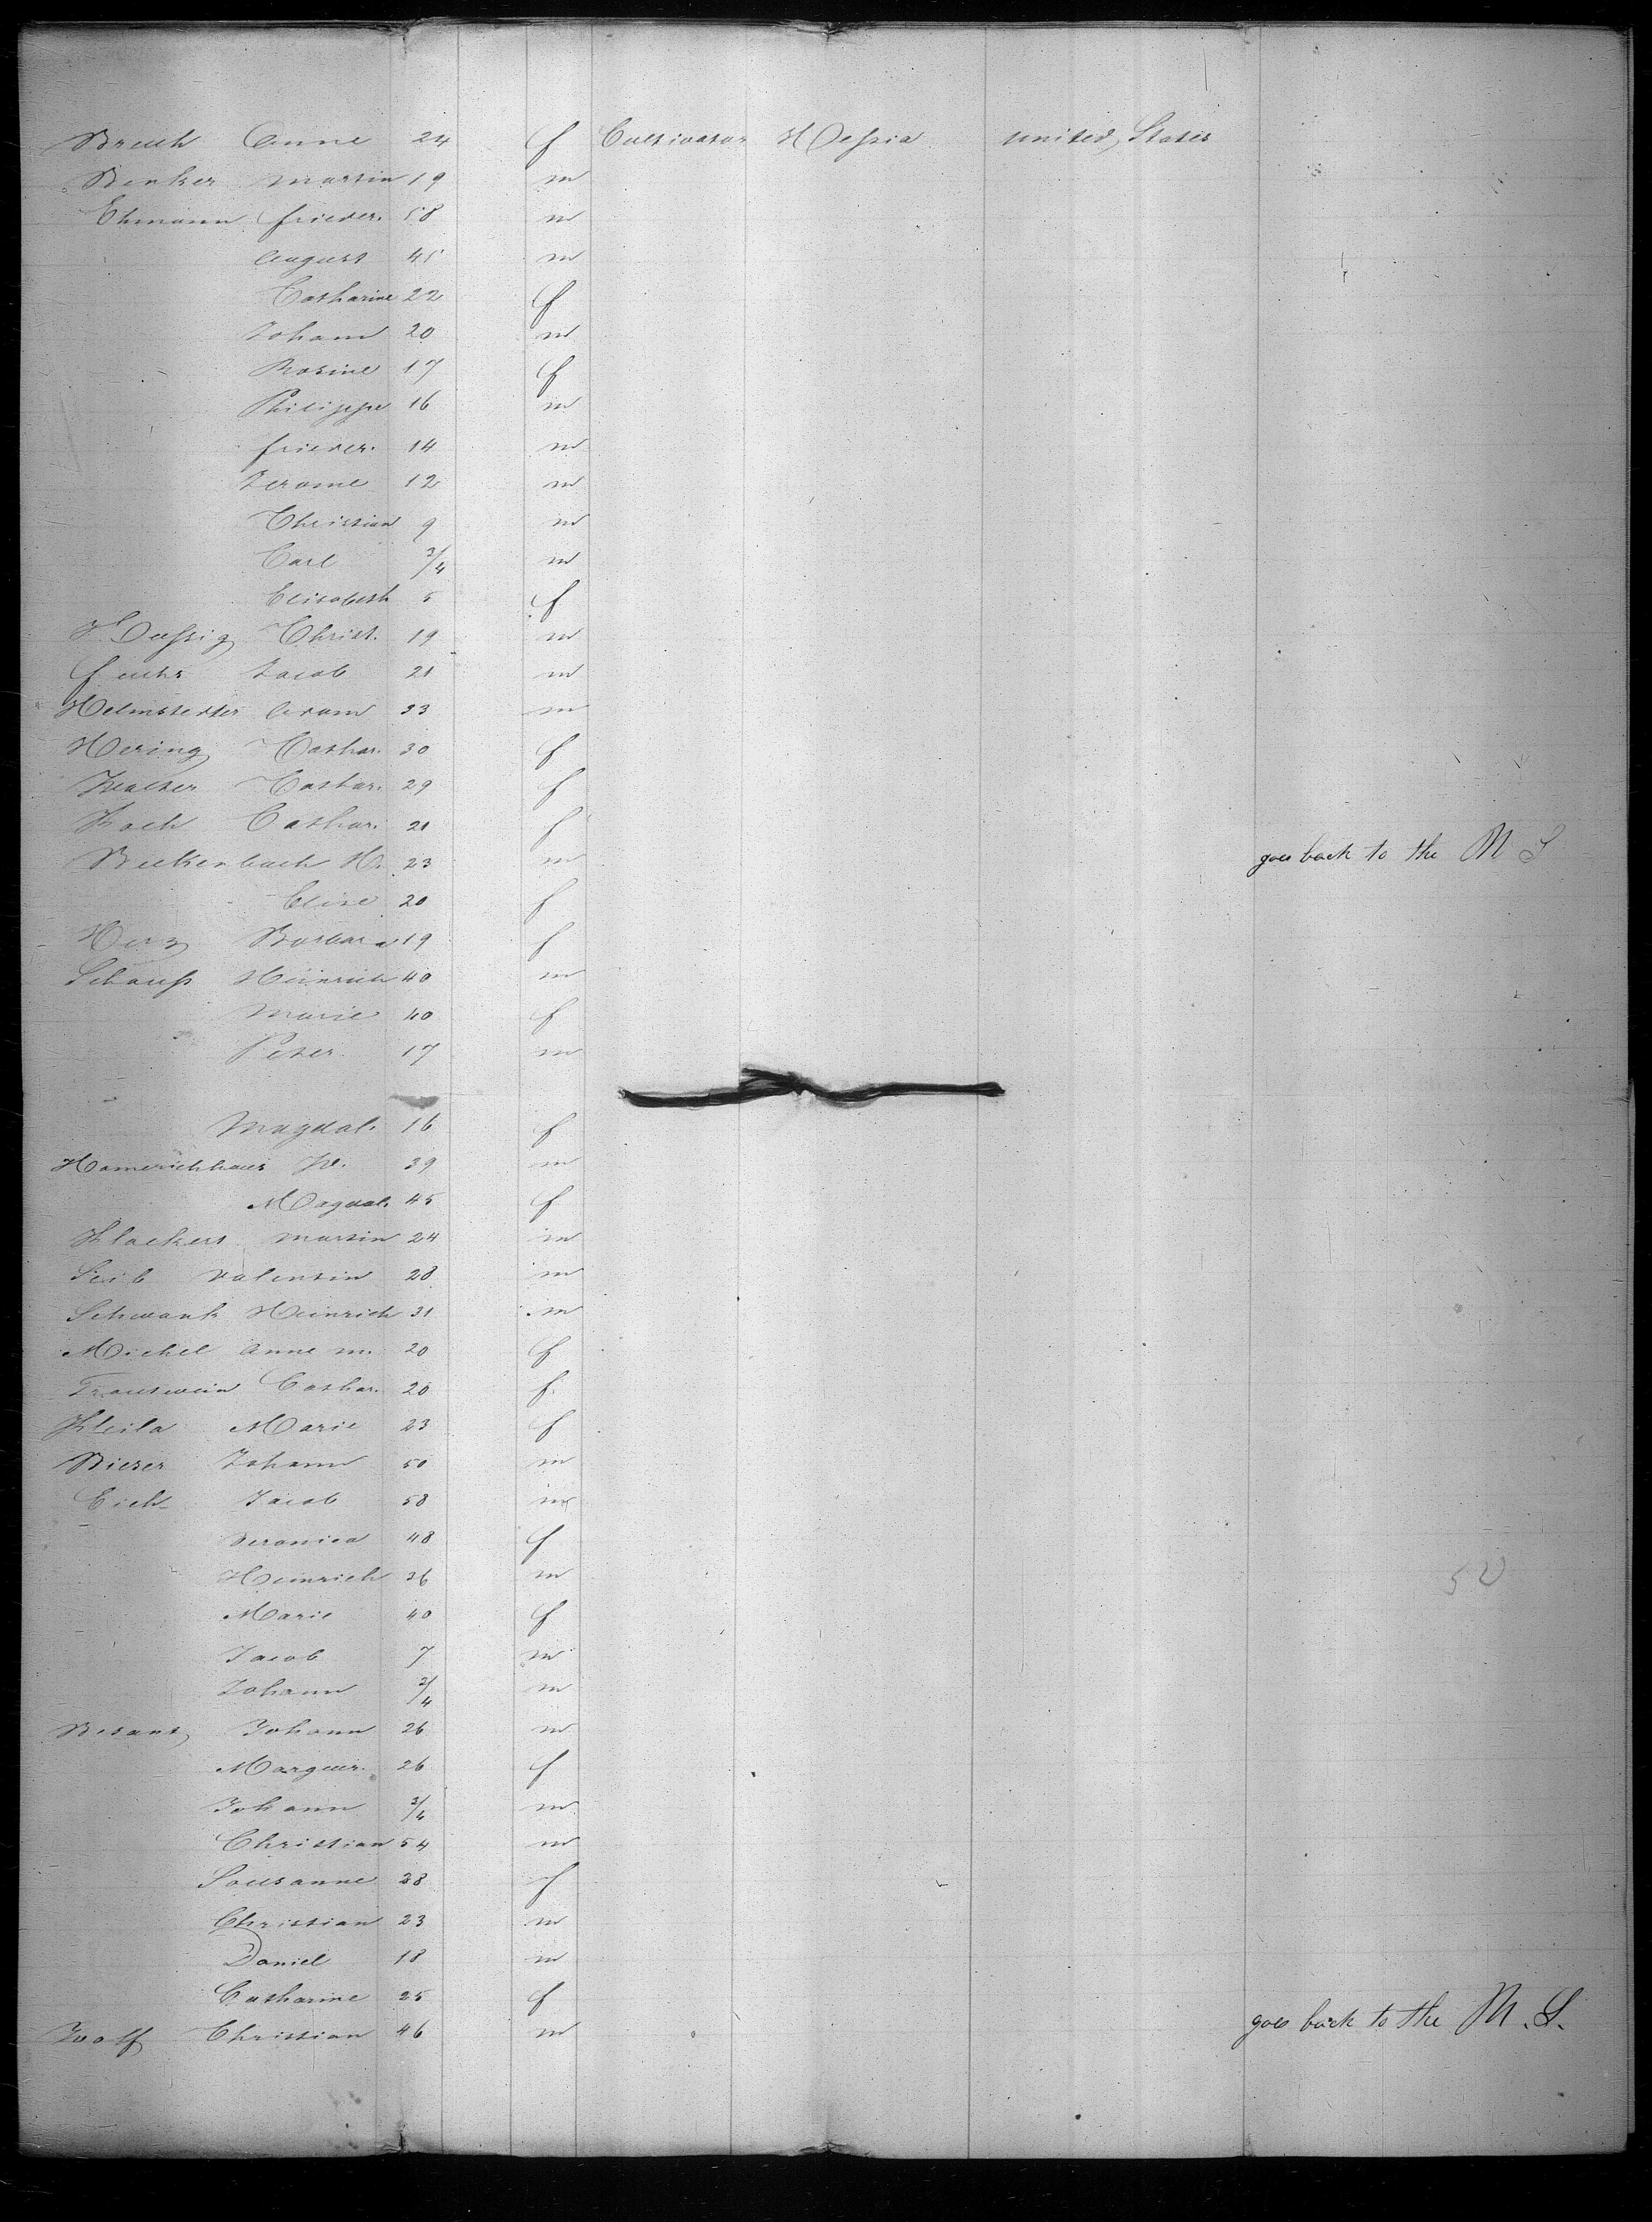 Breuh Anne 24 f Cultivator Hessia united States
Benker Martin 19 m
Ehmann frieder. 58 m
August 45 m
Catharine 22 f
Johann 20 m
Rosine 17 f
Philippe 16 m
frieder. 14 m
Jerome 12 m
Christian 9 m
Carl 3/4 m
Elisabeth 5 f
Christ. 19 m
fuchs Jacob 21 m
Helmstedter Adam 33 m
Hering Cathar. 30 f
Walter Cathar. 29 f
Koch Cathar. 21 f
Beckenbach H. 23 m goes back to the M S
Elise 20 f
Herz Barbara 19 f
Schauß Heinrich 40 m
Marie 40 f
Peter 17 m
Magdal. 16 f
Hamerichhaus W. 39 m
Magdal. 45 f
Klackert Martin 24 m
Seib Valentin 28 m
Schwank Heinrich 31 m
Michel Anne m. 20 f
Trautwein Cathar. 20 f.
Kleila Marie 23 f
Bieser Johann 50 m
Eich Jacob 58 m
Veronica 48 f
Heinrich 36 m
Marie 40 f
50
Jacob 7 m
Johann 3/4 m
Besant Johann 26 m
Margar. 26 f
Johann 3/4 m
Christian 54 m
Sousanne 28 f
Christian 23 m
Daniel 18 m
Catharine 25 f
Wolf Christian 46 m goes back to the M. S.